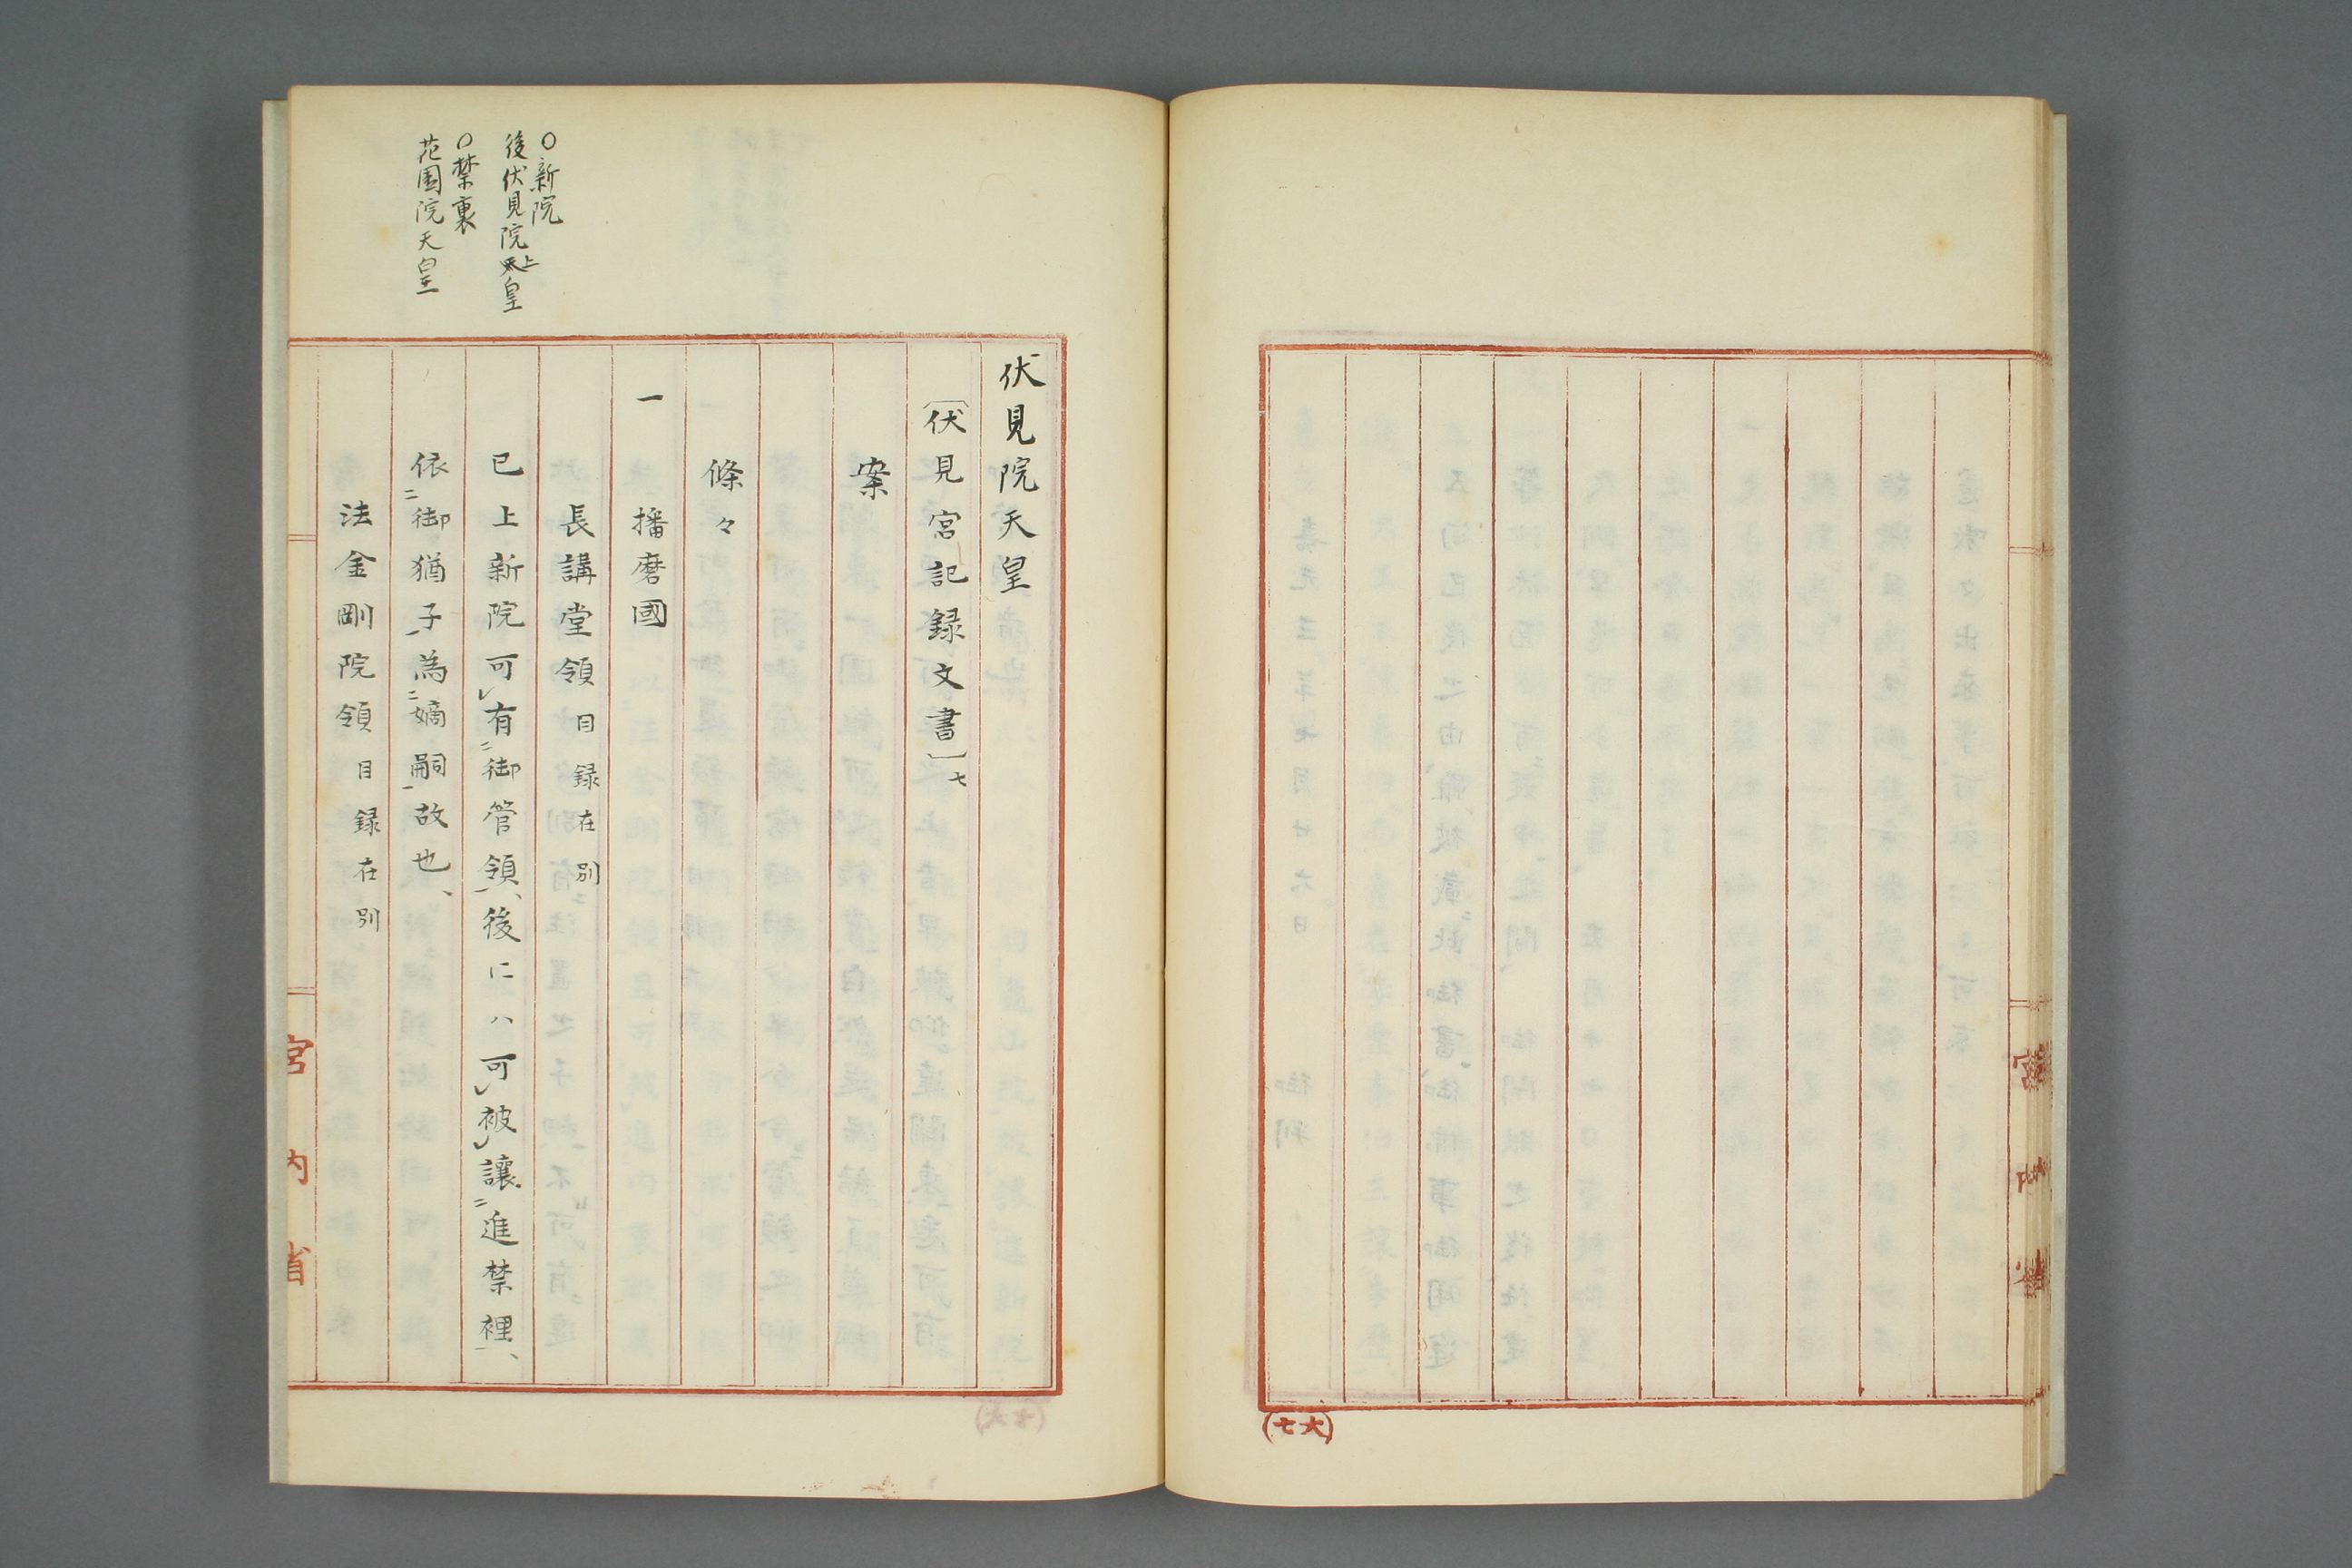 (七大)
○新院
後伏見院上皇
○禁裏
花園院天皇
伏見院天皇
〔伏見宮記録文書〕七
案
條々
一 播磨國
長講堂領目録在別
已上新院可㆑有㆓御管領㆒、後ニハ可㆑被㆑讓㆓進禁裡㆒、
依㆓御猶子㆒為㆓嫡嗣㆒故也、
法金剛院領目録在別
宮内省